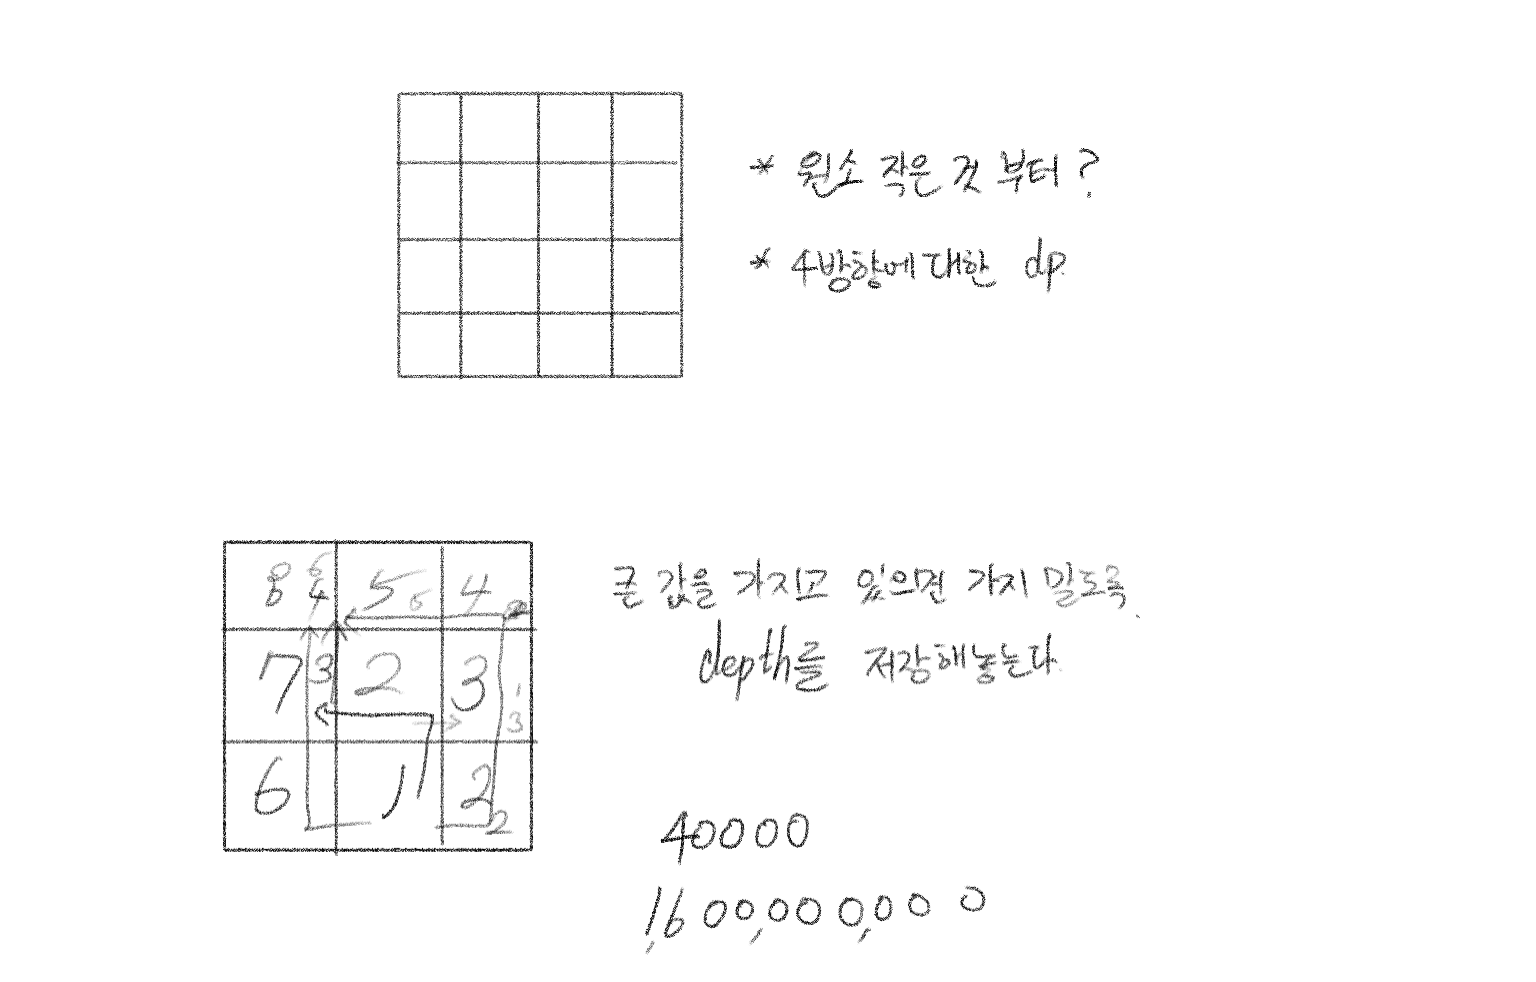 * 원소 작은 것 부터 ?
* 4방향에 대한 dp
8 6 4 5 6 4
7 3 2 3 3
6 1 2 2
큰 값을 가지고 있으면 가지 말도록.
depth를 저장해놓는다
40000
1,600,000,000